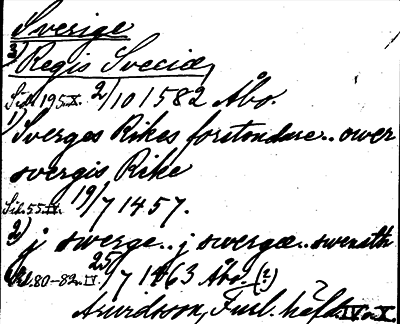 Sverige
3) Regis Sveciæ,
Sid. 195.X. 2/10 1582 Åbo.
1) Sverges Rikes forstondare.. ower
svergis Rike
Sid. 55.IV. 19/7 1457.
2) j swerge.. j swergæ.. swerath
Sid. 80-82.IV 25/7 1463 Åbo. (?)
Arwidsson, Finl. häfd. IV o. X.